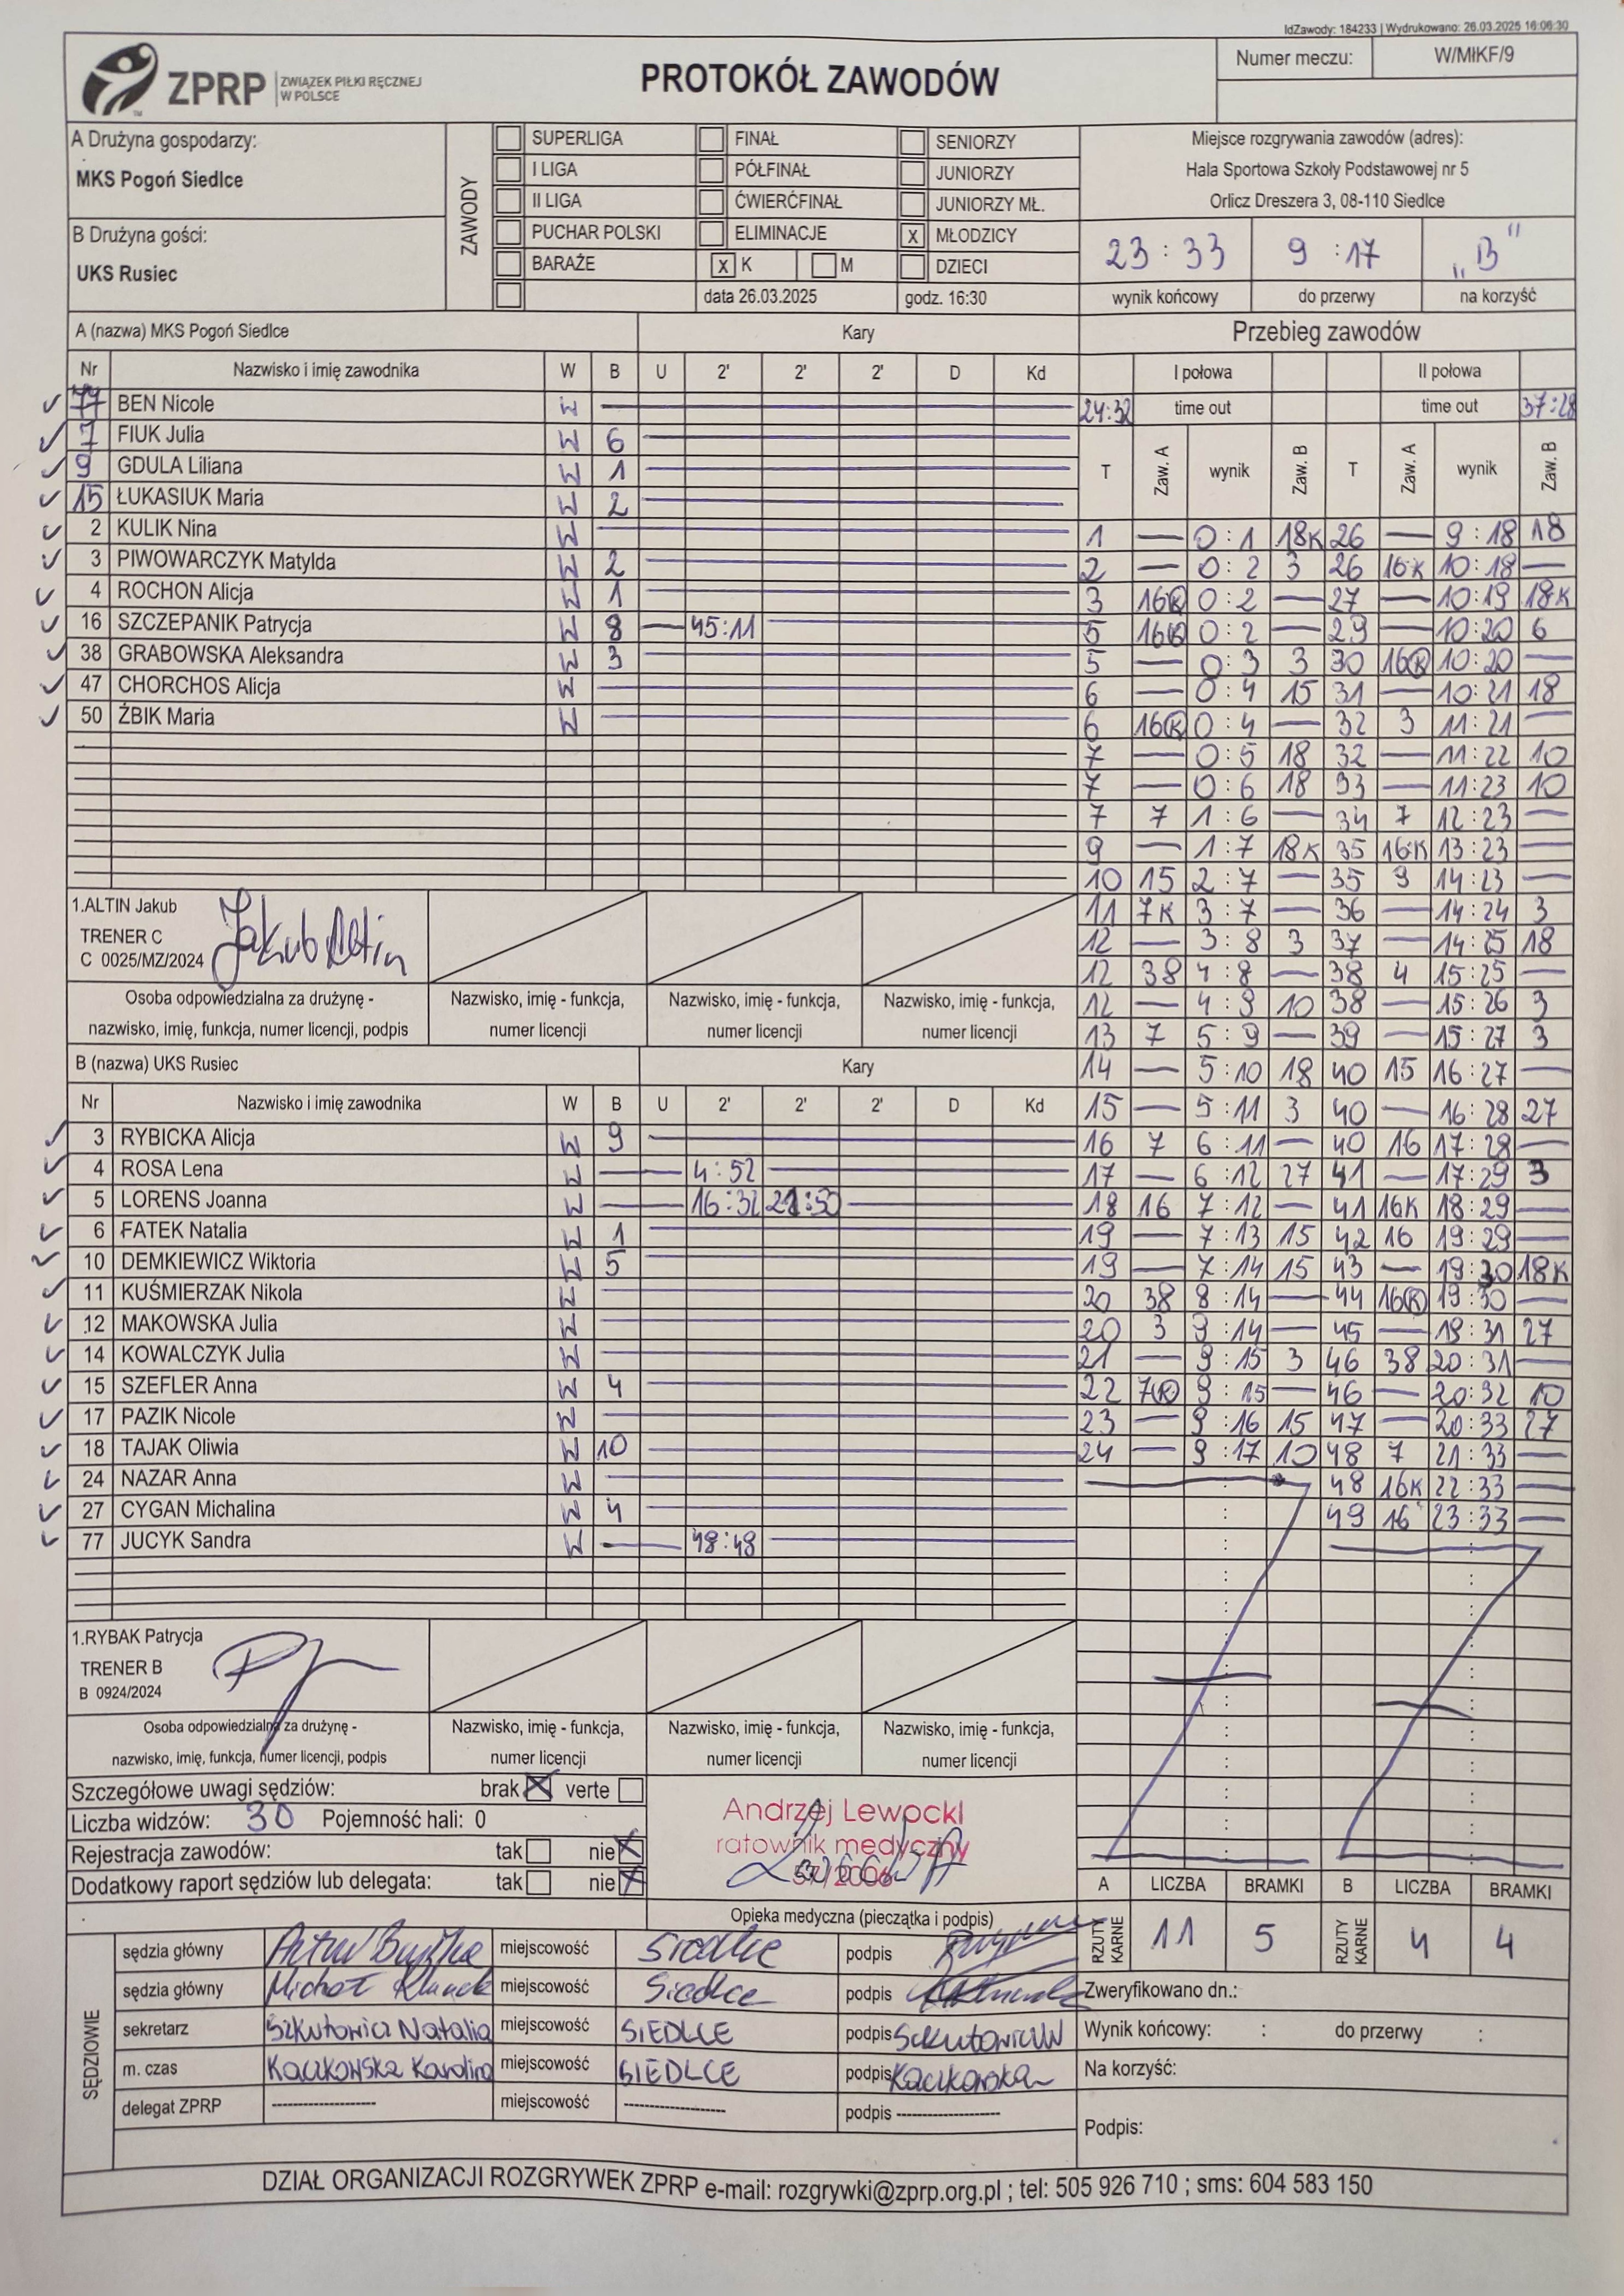 IdZawody: 184233 | Wydrukowano: 26.03.2025 16:06:30
ZPRP ZWIĄZEK PIŁKI RĘCZNEJ W POLSCE
PROTOKÓŁ ZAWODÓW
Numer meczu: W/MłKF/9
A Drużyna gospodarzy:
MKS Pogoń Siedlce
B Drużyna gości:
UKS Rusiec
ZAWODY
SUPERLIGA FINAŁ SENIORZY
I LIGA PÓŁFINAŁ JUNIORZY
II LIGA ĆWIERĆFINAŁ JUNIORZY MŁ.
PUCHAR POLSKI ELIMINACJE X MŁODZICY
BARAŻE X K M DZIECI
data 26.03.2025 godz. 16:30
Miejsce rozgrywania zawodów (adres):
Hala Sportowa Szkoły Podstawowej nr 5
Orlicz Dreszera 3, 08-110 Siedlce
23:33 9:17 „B"
wynik końcowy do przerwy na korzyść
A (nazwa) MKS Pogoń Siedlce Kary
Nr Nazwisko i imię zawodnika W B U 2' 2' 2' D Kd
77 BEN Nicole W —
7 FIUK Julia W 6
9 GDULA Liliana W 1
15 ŁUKASIUK Maria W 2
2 KULIK Nina W —
3 PIWOWARCZYK Matylda W 2
4 ROCHON Alicja W 1
16 SZCZEPANIK Patrycja W 8 — 45:11
38 GRABOWSKA Aleksandra W 3
47 CHORCHOS Alicja W —
50 ŻBIK Maria W —
1.ALTIN Jakub
TRENER C
C 0025/MZ/2024
Jakub Altin
Osoba odpowiedzialna za drużynę -
nazwisko, imię, funkcja, numer licencji, podpis
Nazwisko, imię - funkcja,
numer licencji
Nazwisko, imię - funkcja,
numer licencji
Nazwisko, imię - funkcja,
numer licencji
B (nazwa) UKS Rusiec Kary
Nr Nazwisko i imię zawodnika W B U 2' 2' 2' D Kd
3 RYBICKA Alicja W 9
4 ROSA Lena W — 4:52
5 LORENS Joanna W — 16:32
6 FATEK Natalia W 1
10 DEMKIEWICZ Wiktoria W 5
11 KUŚMIERZAK Nikola W —
12 MAKOWSKA Julia W —
14 KOWALCZYK Julia W —
15 SZEFLER Anna W 4
17 PAZIK Nicole W —
18 TAJAK Oliwia W 10
24 NAZAR Anna W —
27 CYGAN Michalina W 4
77 JUCYK Sandra W — 48:48
1.RYBAK Patrycja
TRENER B
B 0924/2024
Osoba odpowiedzialna za drużynę -
nazwisko, imię, funkcja, numer licencji, podpis
Nazwisko, imię - funkcja,
numer licencji
Nazwisko, imię - funkcja,
numer licencji
Nazwisko, imię - funkcja,
numer licencji
Przebieg zawodów
I połowa II połowa
24:32 time out time out 37:28
T Zaw. A wynik Zaw. B T Zaw. A wynik Zaw. B
1 — 0:1 18K 26 — 9:18 18
2 — 0:2 3 26 16K 10:18 —
3 16K 0:2 — 27 — 10:19 18K
5 16K 0:2 — 29 — 10:20 6
5 — 0:3 3 30 16K 10:20 —
6 — 0:4 15 31 — 10:21 18
6 16K 0:4 — 32 3 11:21 —
7 — 0:5 18 32 — 11:22 10
7 — 0:6 18 33 — 11:23 10
7 7 1:6 — 34 7 12:23 —
9 — 1:7 18K 35 16K 13:23 —
10 15 2:7 — 35 9 14:23 —
11 7K 3:7 — 36 — 14:24 3
12 — 3:8 3 37 — 14:25 18
12 38 4:8 — 38 4 15:25 —
12 — 4:9 10 38 — 15:26 3
13 7 5:9 — 39 — 15:27 3
14 — 5:10 18 40 15 16:27 —
15 — 5:11 3 40 — 16:28 27
16 7 6:11 — 40 16 17:28 —
17 — 6:12 27 41 — 17:29 3
18 16 7:12 — 41 16K 18:29 —
19 — 7:13 15 42 16 19:29 —
19 — 7:14 15 43 — 19:30 18K
20 38 8:14 — 44 16K 19:30 —
20 3 9:14 — 45 — 19:31 27
21 — 9:15 3 46 38 20:31 —
22 7K 9:15 — 46 — 20:32 10
23 — 9:16 15 47 — 20:33 27
24 — 9:17 10 48 7 21:33 —
48 16K 22:33 —
49 16 23:33 —
Szczegółowe uwagi sędziów: brak X verte
Liczba widzów: 30 Pojemność hali: 0
Rejestracja zawodów: tak nie X
Dodatkowy raport sędziów lub delegata: tak nie X
Andrzej Lewocki
ratownik medyczny
57/2006
Opieka medyczna (pieczątka i podpis)
A LICZBA BRAMKI B LICZBA BRAMKI
RZUTY KARNE 11 5 RZUTY KARNE 4 4
SĘDZIOWIE
sędzia główny Artur miejscowość Siedlce podpis
sędzia główny Michał miejscowość Siedlce podpis
sekretarz Szkutowicz Natalia miejscowość SIEDLCE podpis
m. czas Kaczkowska Karolina miejscowość SIEDLCE podpis Kaczkowska
delegat ZPRP ---------- miejscowość ---------- podpis ----------
Zweryfikowano dn.:
Wynik końcowy: : do przerwy :
Na korzyść:
Podpis:
DZIAŁ ORGANIZACJI ROZGRYWEK ZPRP e-mail: rozgrywki@zprp.org.pl ; tel: 505 926 710 ; sms: 604 583 150